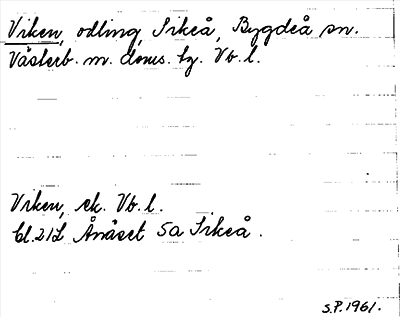 Viken, odling, Sikeå, Bygdeå sn.
Västerb. m. doms. tg. Vb. l.
Viken, ek. Vb. l.
Bl. 21L Ånäset 5a Sikeå.
S.P. 1961.